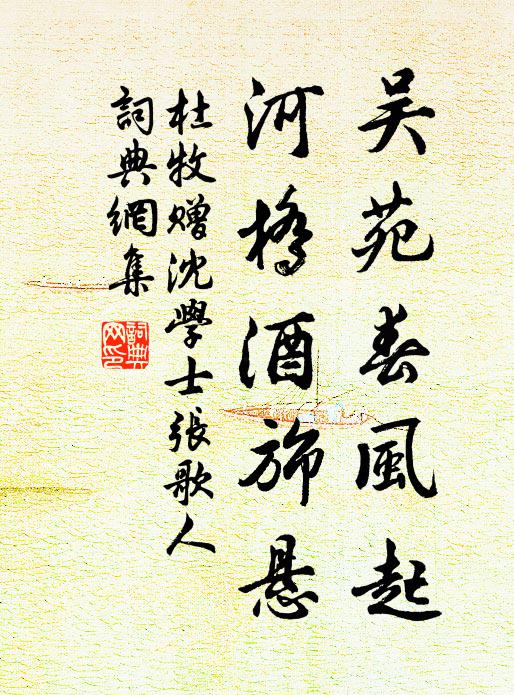 吴苑春風起
河橋酒旆悬
杜牧赠沈學士張歌人
詞典網集
詞典网印